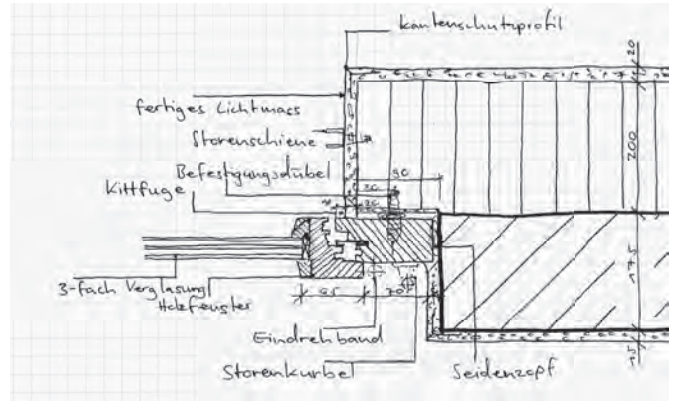 kantenschutzprofil
20
fertiges Lichtmass
Storenschiene
200
Befestigungsdübel
90
Kittfuge
30
20
175
3-fach Verglasung
Holzfenster
65
70
Eindrehband
Storenkurbel
Seidenzopf
15